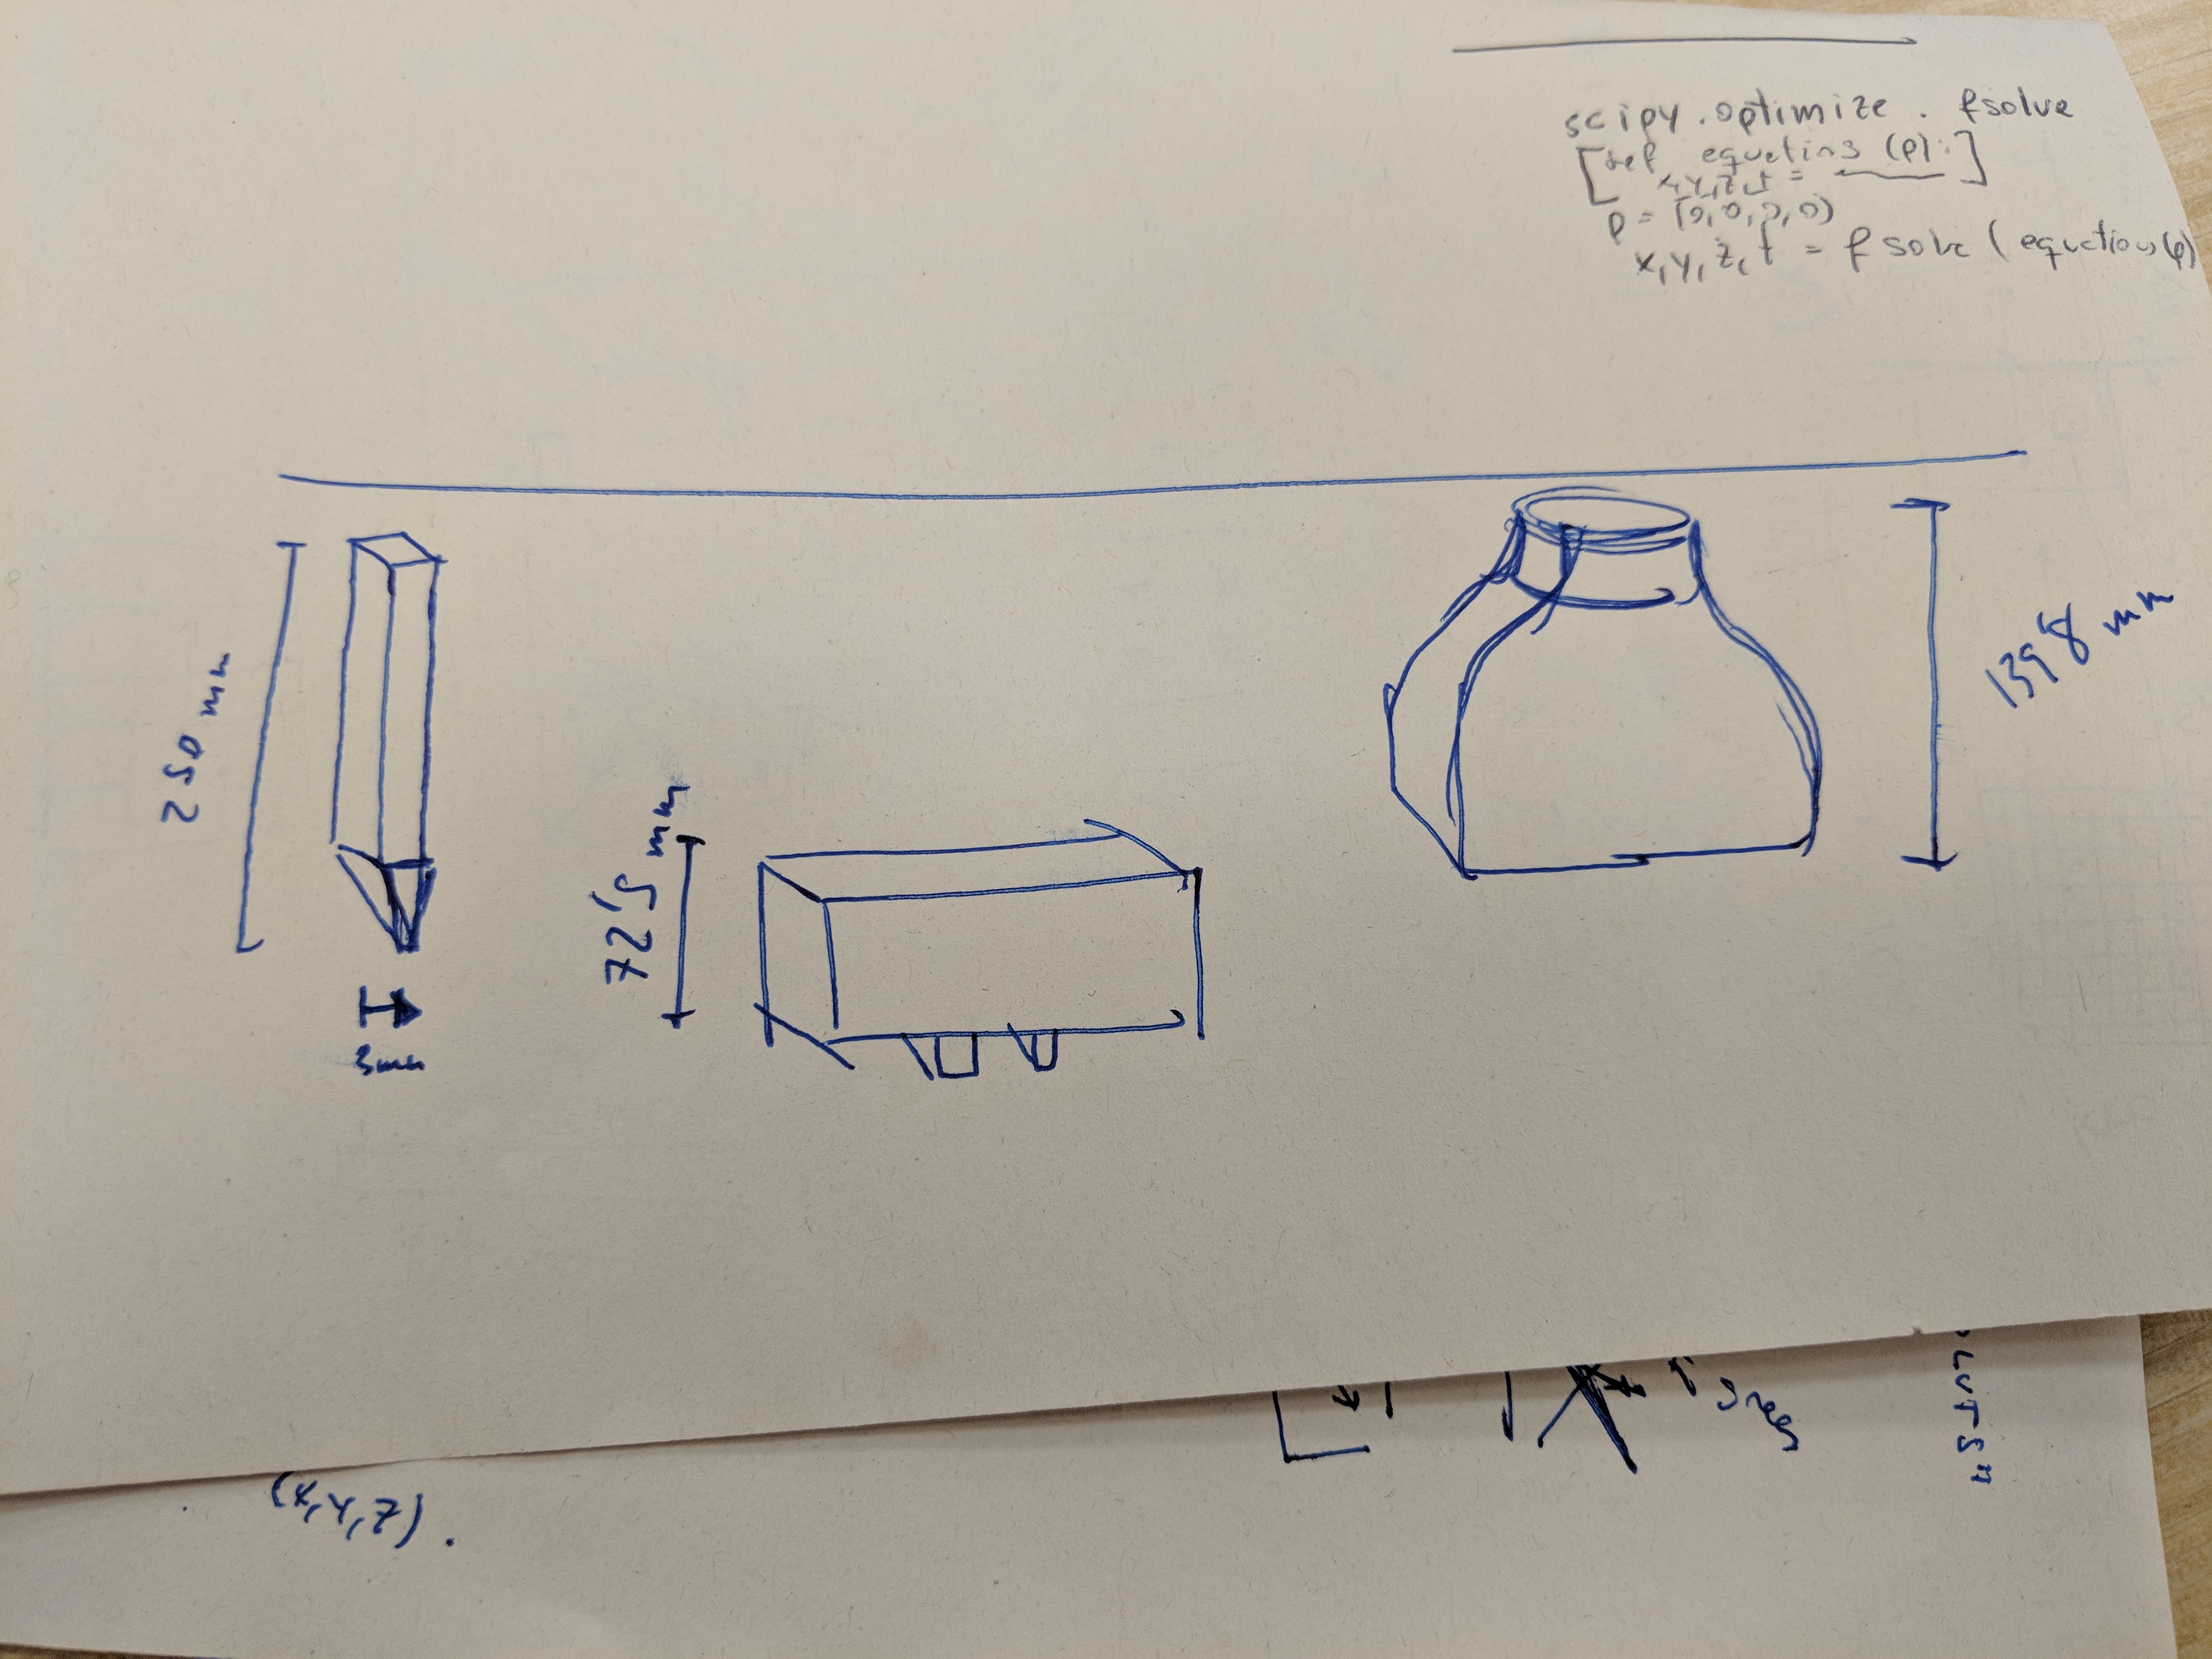 scipy.optimize. fsolve
[def equations (p):]
x,y,z,t =
p = [0,0,0,0)
x,y,z,t = fsolve (equations(p)
250 mm
3mm
72,5 mm
1398 mm
(x,y,z).